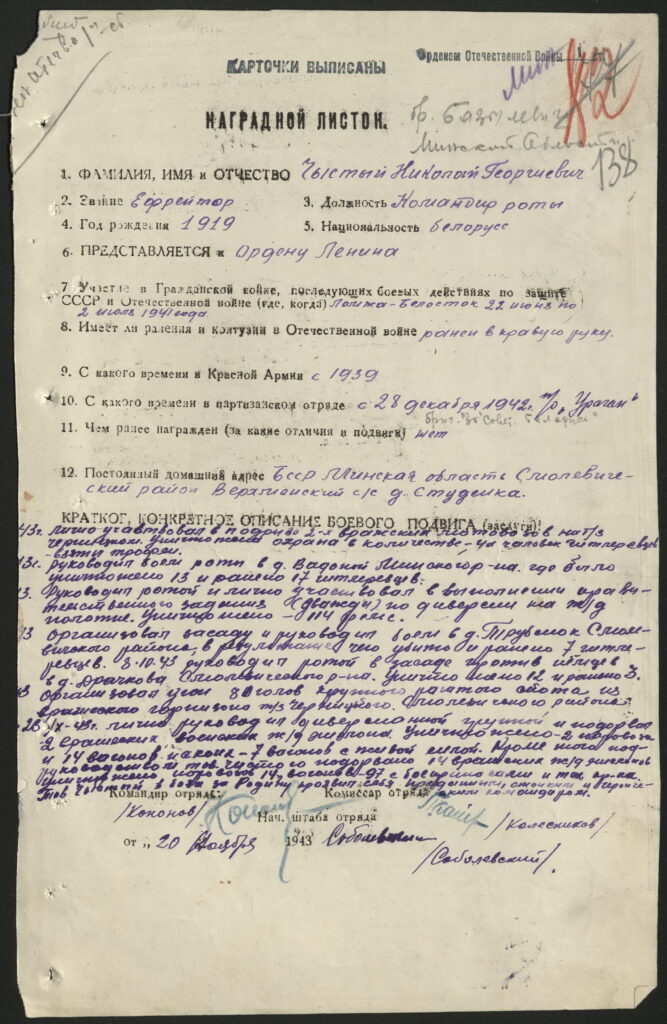 КАРТОЧКИ ВЫПИСАНЫ
Орденом Отечественной Войны 1 ст.
НАГРАДНОЙ ЛИСТОК.
Минской области
138
1. ФАМИЛИЯ, ИМЯ и ОТЧЕСТВО Чыстый Николай Георгиевич
2. Звание Ефрейтор 3. Должность Командир роты
4. Год рождения 1919 5. Национальность белорусс
6. ПРЕДСТАВЛЯЕТСЯ к Ордену Ленина
7 Участие в Гражданской войне, последующих боевых действиях по защите
СССР и Отечественной войне (где, когда) Ломжа-Белосток 22 июня по
2 июля 1941 года.
8. Имеет ли ранения и контузии в Отечественной войне ранен в правую руку.
9. С какого времени в Красной Армии с 1939
10. С какого времени в партизанском отряде с 28 декабря 1942г. п/о „Ураган"
11. Чем ранее награжден (за какие отличия и подвиги) нет
12. Постоянный домашний адрес БССР Минская область Смолевиче-
ский район с/с д. Студенка.
КРАТКОЕ, КОНКРЕТНОЕ ОПИСАНИЕ БОЕВОГО ПОДВИГА (заслуги):
43г. лично участвовал в подрыве 2-х вражеских мотовозов на т/з
Черницком. Уничтожена охрана в количестве - 4х человек гитлеровцев
взяты трофеи.
руководил боем роты в д. Минского р-на. где было
уничтожено 13 и ранено 17 гитлеровцев.
Руководил ротой и лично участвовал в выполнении прави-
тельственного задания (дважды) по диверсии на ж/д
полотне. Уничтожено - 114 рельс.
Организовал засаду и руководил боем в д. Смоле-
вичского района, в результате чего убито и ранено 7 гитле-
ревцев. 3.10.43 руководил ротой в засаде против немцев
в д. Драчкова, Смолевического р-на. Уничтожено 12 и ранено 3.
Организовал угон 80 голов крупного рогатого скота из
вражеского гарнизона т/з Черницкого. Смолевичского района.
28.IX-43г. лично руководил диверсионной группой и подорвал
2 вражеских воинских ж/д эшелона. Уничтожено-2 паровоза
и 14 вагонов из коих-7 вагонов с живой силой. Кроме того под
руководством тов. Чыстого подорвано 14 вражеских ж/д эшелонов
Уничтожено паровозов 14, вагонов-97 с
Тов. Чыстый в боях за Родину проявил себя и герои-
ческим командиром.
Командир отряда: Комиссар отряда
/Кононов/
/Колесников/
Нач. штаба отряда
от „20 Ноября 1943
/Соболевский/.